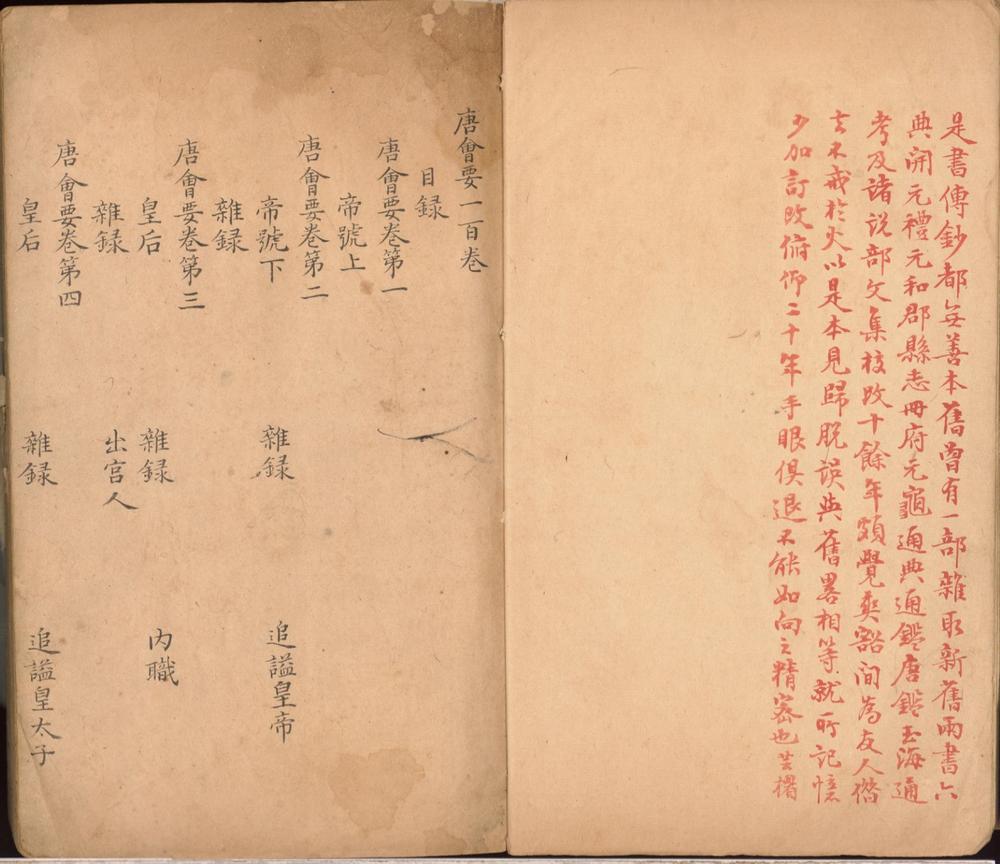 是書傳鈔都無善本舊曾有一部雜取新舊兩書六
典開元禮元和郡縣志冊府元龜通典通鑑唐鑑玉海通
考及諸説部文集校改十餘年頗覺爽豁间為友人借
去不戒於火以是本見歸脱誤與舊畧相等就所記憶
少加訂改俯仰二十年手眼俱退不能如向之精密也芸楣
唐會要一百卷
目録
唐會要卷第一
帝號上
唐會要卷第二
帝號下 雜録 追謚皇帝
雜録
唐會要卷第三
皇后 雜録 内職
雜録 出宫人
唐會要卷第四
皇后 雜録 追謚皇太子